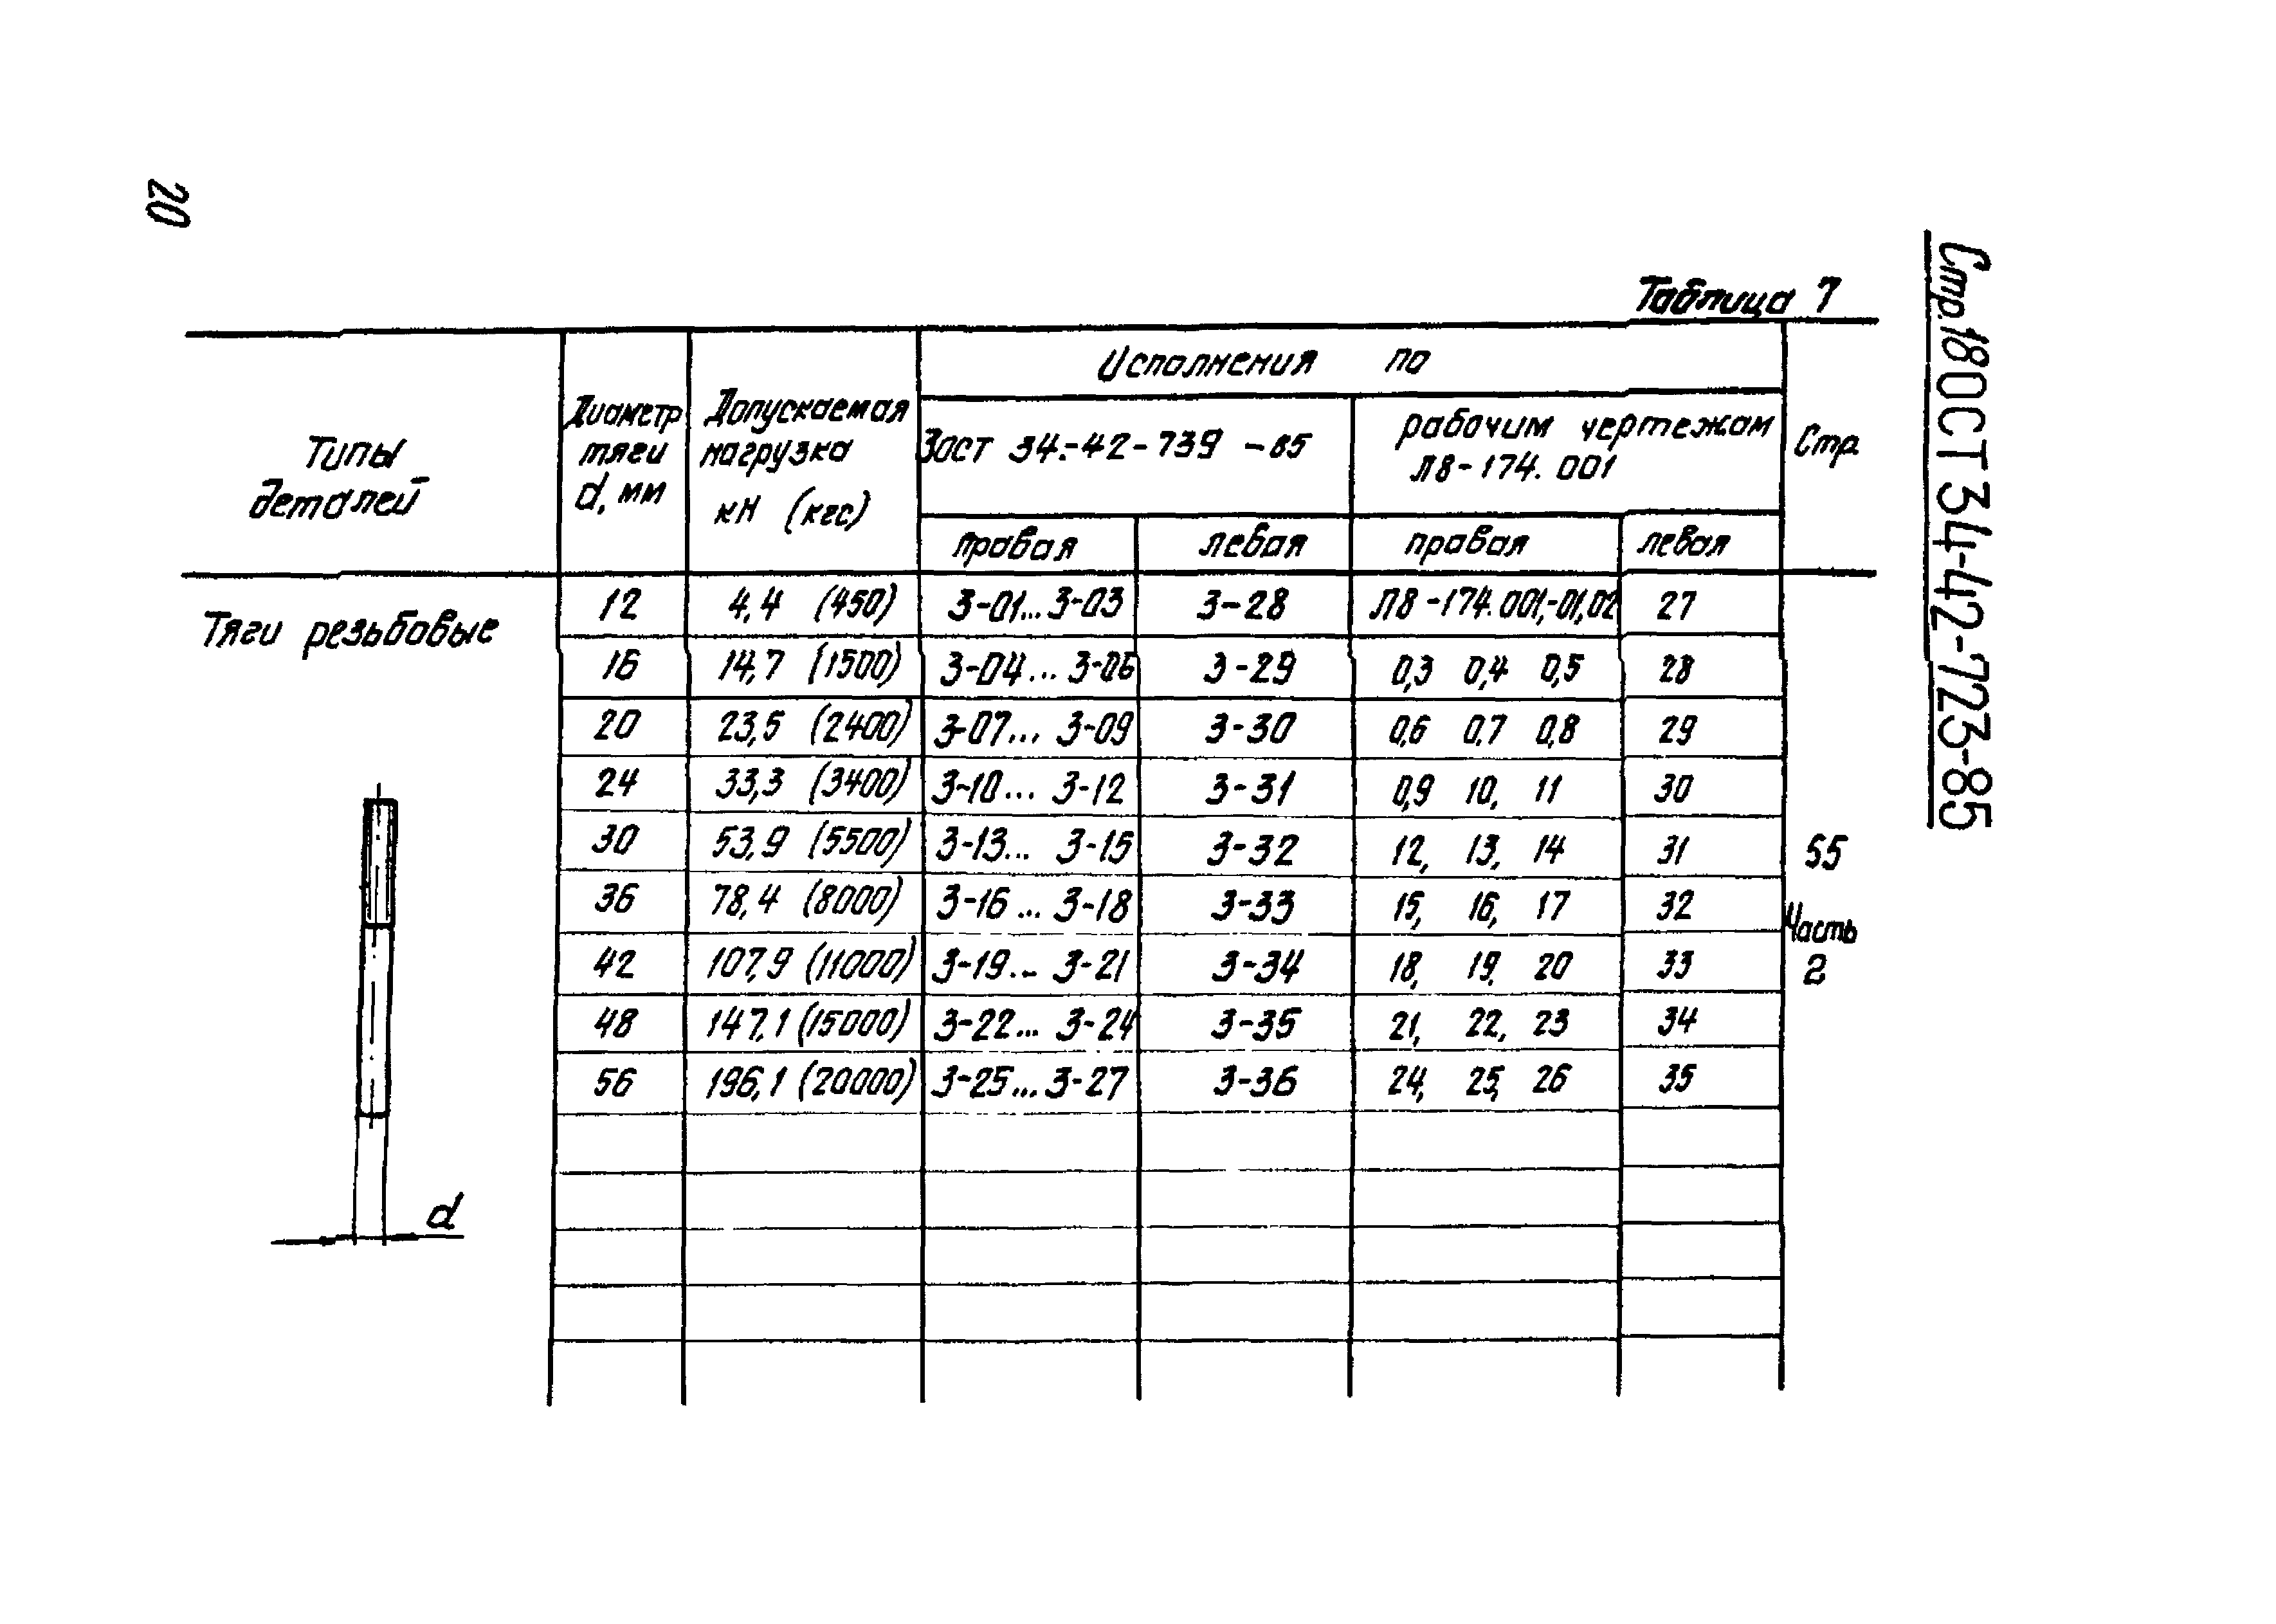 20
Стр.18 ОСТ 34-42-723-85
Таблица 7
Типы деталей
Диаметр тяги d, мм
Допускаемая нагрузка кН (кгс)
Исполнения по
Зост 34.-42-739-85
рабочим чертежам Л8-174.001
Стр
правая левая правая левая
Тяги резьбовые
12 4,4 (450) 3-01...3-03 3-28 Л8-174.001,-01,02 27
16 14,7 (1500) 3-04...3-06 3-29 0,3 0,4 0,5 28
20 23,5 (2400) 3-07... 3-09 3-30 0,6 0,7 0,8 29
24 33,3 (3400) 3-10... 3-12 3-31 0,9 10, 11 30
30 53,9 (5500) 3-13... 3-15 3-32 12, 13, 14 31
36 78,4 (8000) 3-16... 3-18 3-33 15, 16, 17 32
42 107,9 (11000) 3-19... 3-21 3-34 18, 19, 20 33
48 147,1 (15000) 3-22... 3-24 3-35 21, 22, 23 34
56 196,1 (20000) 3-25...3-27 3-36 24, 25, 26 35
55
Часть
2
d